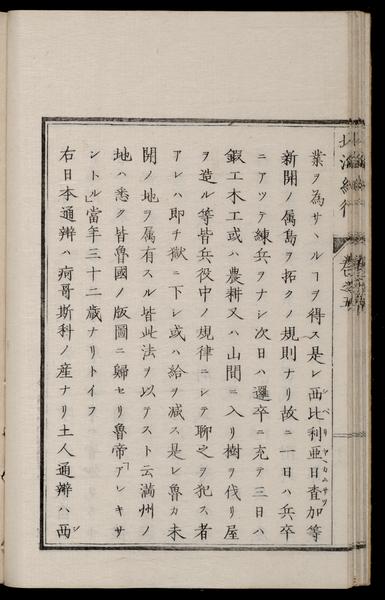 北海紀行
巻之五
業ヲ為サヽルヿヲ得ス是レ西比利亜日査加等
シベリヤ
新開ノ属島ヲ拓クノ規則ナリ故ニ一日ハ兵卒
ニアツテ練兵ヲナシ次日ハ邏卒ニ充テ三日ハ
鍜工木工或ハ農耕又ハ山間ニ入リ樹ヲ伐リ屋
ヲ造ル等皆兵役中ノ規律ニシテ聊之ヲ犯ス者
アレハ即チ獄ニ下シ或ハ給ヲ減ス是レ魯カ未
開ノ地ヲ属有スル皆此法ヲ以テスト云満州ノ
地ハ悉ク皆魯國ノ版圖ニ歸セリ魯帝「アレキサ
ントル」當年三十二歳ナリトイフ
右日本通辨ハ痾哥斯科ノ産ナリ土人通辨ハ西
シ